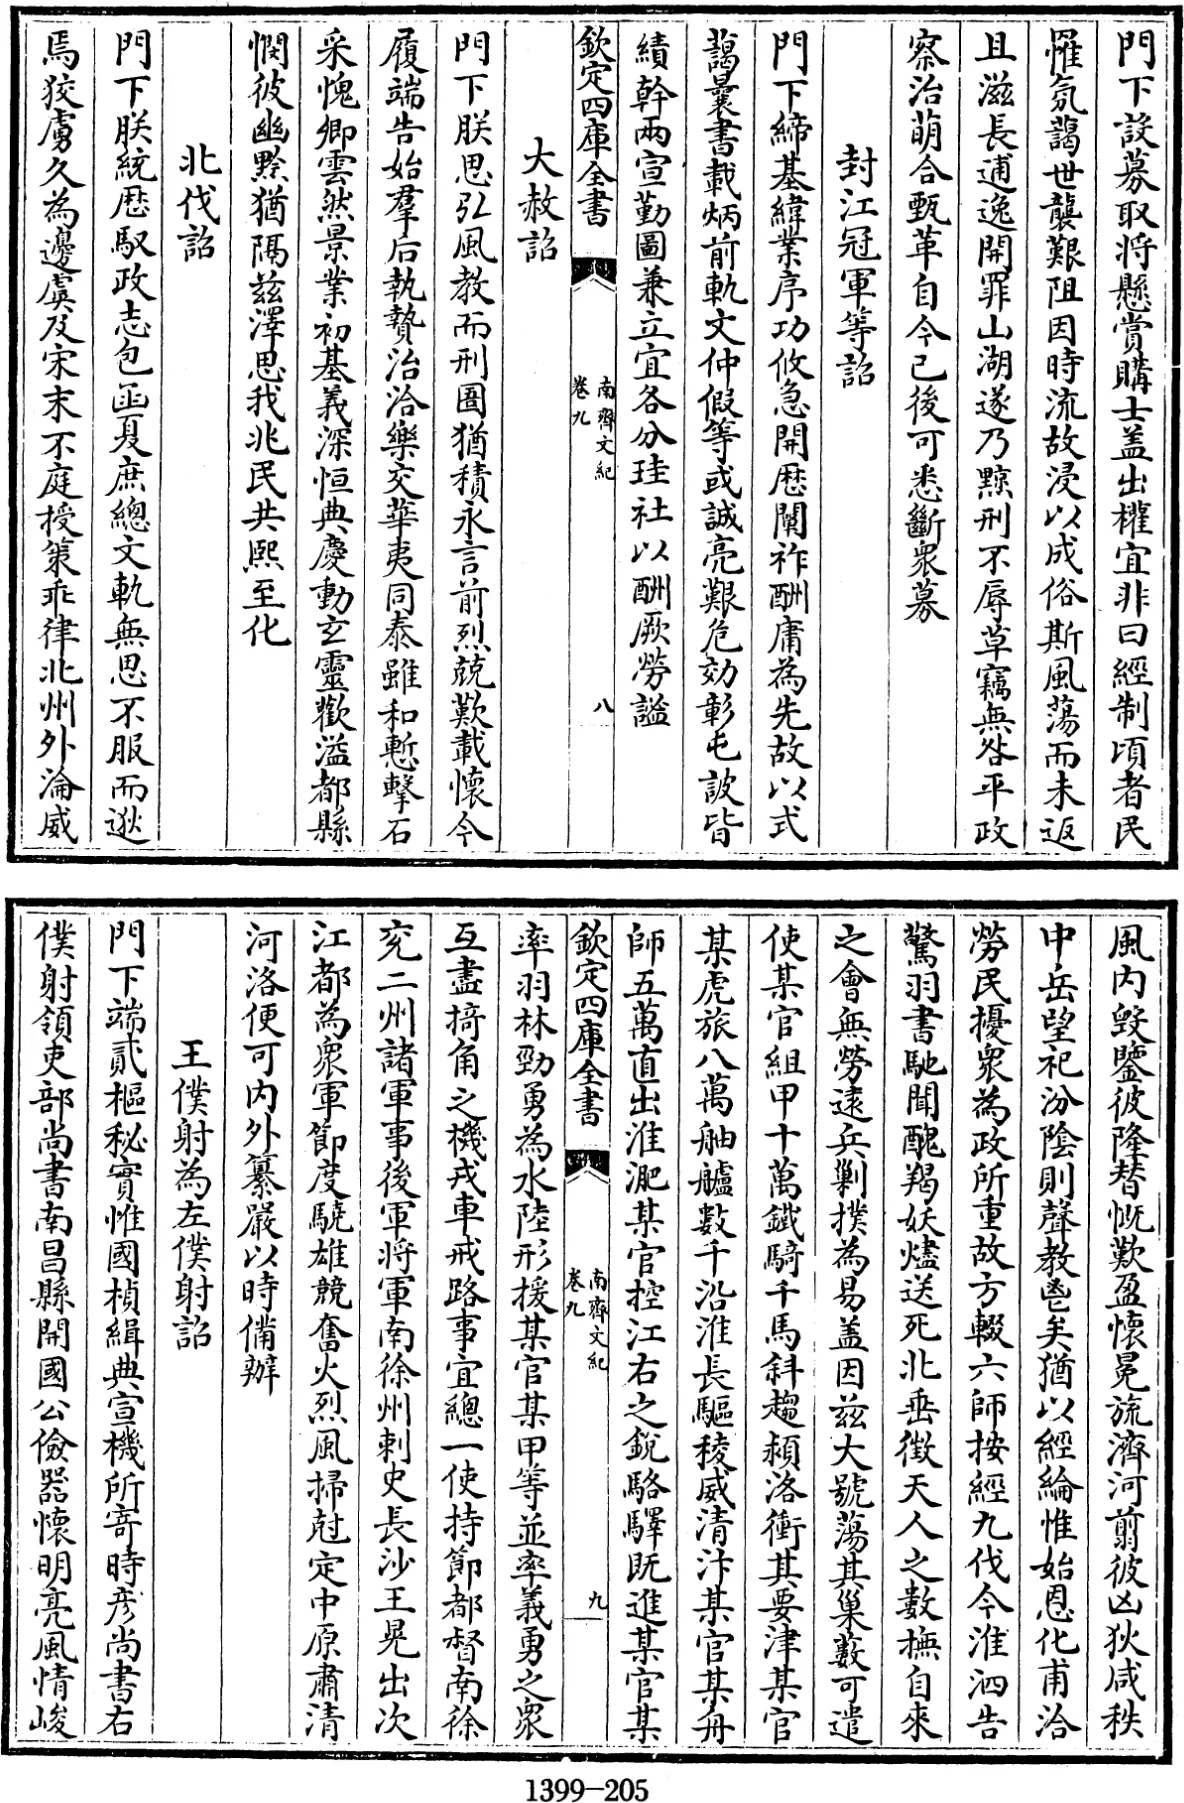 門下設募取將懸賞購士盖出權宜非曰經制頃者民
罹氛藹世襲艱阻因時流故浸以成俗斯風蕩而未返
且滋長逋逸開罪山湖遂乃黥刑不辱草竊無咎平政
察治萌合甄革自今已後可悉斷衆募
封江冠軍等詔
門下締基緯業序功攸急開歷闡祚酬庸為先故以式
藹曩書載炳前軌文仲假等或誠亮艱危効彰屯詖皆
績幹兩宣勤圖兼立宜各分珪社以酬厥勞謚
欽定四庫全書
南齊文紀
卷九
八
大赦詔
門下朕思弘風教而刑圄猶積永言前烈兢歎載懷今
履端告始羣后執贄治洽樂交華夷同泰雖和慙擊石
采愧卿雲然景業初基義深恒典慶動玄靈歡溢都縣
憫彼幽黥猶隔兹澤思我兆民共熙至化
北伐詔
門下朕統歴馭政志包函夏庶總文軌無思不服而逖
焉狡虜久為邊虞及宋末不庭授策乖律北州外淪威
風内毀鑒彼隆替慨歎盈懷冕旒濟河翦彼凶狄咸秩
中岳望祀汾陰則聲教鬯矣猶以經綸惟始恩化甫洽
勞民擾衆為政所重故方輟六師按經九伐今淮泗告
驚羽書馳聞醜羯妖燼送死北垂徵天人之數撫自來
之會無勞遠兵剿撲為易盖因兹大號蕩其巢藪可遣
使某官組甲十萬鐵騎千馬斜趨潁洛衝其要津某官
某虎旅八萬舳艫數千沿淮長驅稜威清汴某官某舟
師五萬直出淮淝某官控江右之銳駱驛既進某官某
欽定四庫全書
南齊文紀
卷九
九
率羽林勁勇為水陸形援某官某甲等並率義勇之衆
互盡掎角之機戎車戒路事宜總一使持節都督南徐
兖二州諸軍事後軍將軍南徐州刺史長沙王晃出次
江都為衆軍節度驍雄競奮火烈風掃尅定中原肅清
河洛便可内外纂嚴以時備辦
王僕射為左僕射詔
門下端貳樞秘實惟國楨緝典宣機所寄時彦尚書右
僕射領吏部尚書南昌縣開國公儉器懷明亮風情峻
1399-205